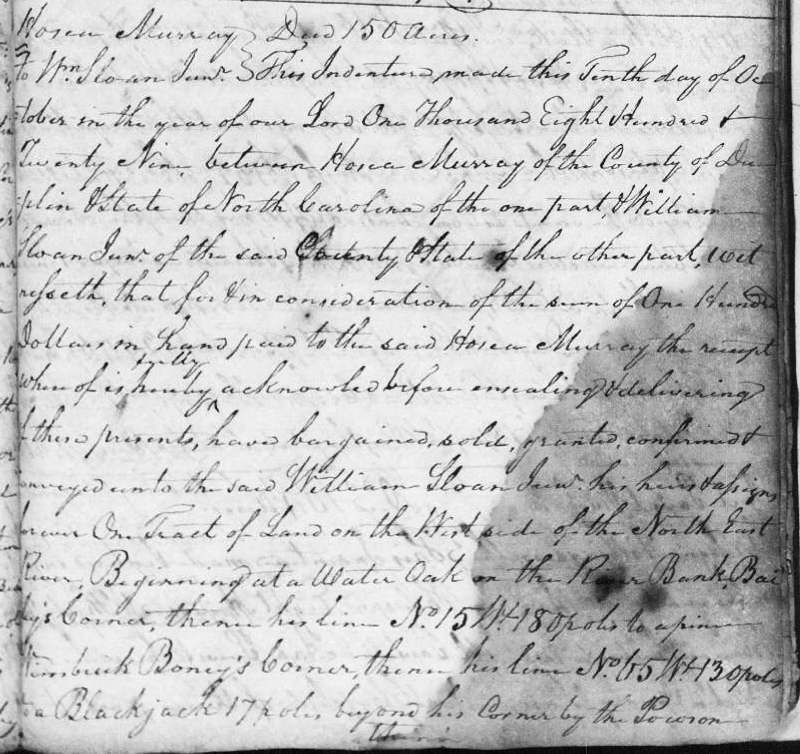 Hosea Murray } Deed 150 Acres.
To Wm. Sloan Junr. } This Indenture made this Tenth day of Oc
tober in the year of our Lord One Thousand Eight Hundred &
Twenty Nine, between Hosea Murray of the County of Du
plin & State of North Carolina of the one part, & William
Sloan Junr. of the said County & State of the other part, wit
nesseth, that for & in consideration of the sum of One Hundred
Dollars in hand paid to the said Hosea Murray the receipt
where of is hereby fully acknowled before ensealing & delivering
of these presents, have bargained, sold, granted, confirmed &
conveyed unto the said William Sloan Junr. his heirs & assigns
forever One Tract of Land on the West side of the North East
River, Beginning at a Water Oak on the River Bank, Bai
ley's Corner, thence his line No. 15 Wt. 180 poles to a pine
Boney's Corner, thence his line No. 65 Wt. 130 poles
to a Blackjack 17 poles beyond his Corner by the